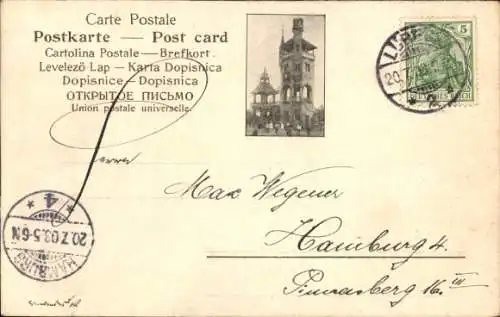 Carte Postale
Postkarte — Post card
Cartolina Postale — Brefkort
Levelező Lap — Karta Dopisnica
Dopisnice — Dopisnica
ОТКРЫТОЕ ПИСЬМО
Union postale universelle.
5
DEUTSCHES REICH
20.
Herrn
Max Wegener
Hamburg 4.
Pinnasberg 16. III
HAMBURG
* 4 *
20.7.03.5-6N